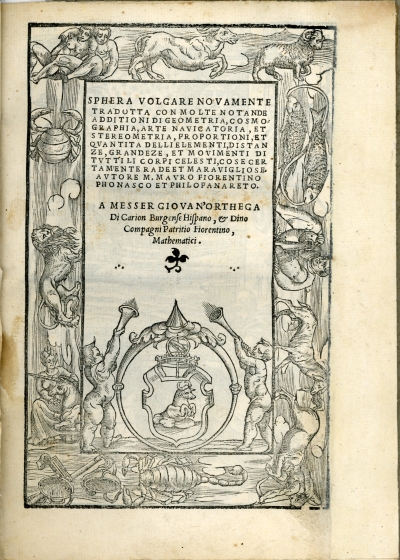 SPHERA VOLGARE NOVAMENTE
TRADOTTA CON MOLTE NOTANDE
ADDITIONI DI GEOMETRIA, COSMO-
GRAPHIA, ARTE NAVICATORIA, ET
STEREOMETRIA, PROPORTIONI, ET
QVANTITA DELLI ELEMENTI, DISTAN
ZE, GRANDEZE, ET MOVIMENTI DI
TVTTI LI CORPI CELESTI, COSE CER
TAMENTE RADE ET MARAVIGLIOSE.
AVTORE M. MAVRO FIORENTINO
PHONASCO ET PHILOPANARETO.
A MESSER GIOVAN'ORTHEGA
Di Carion Burgense Hispano, & Dino
Compagni Patritio Fiorentino,
Mathematici.